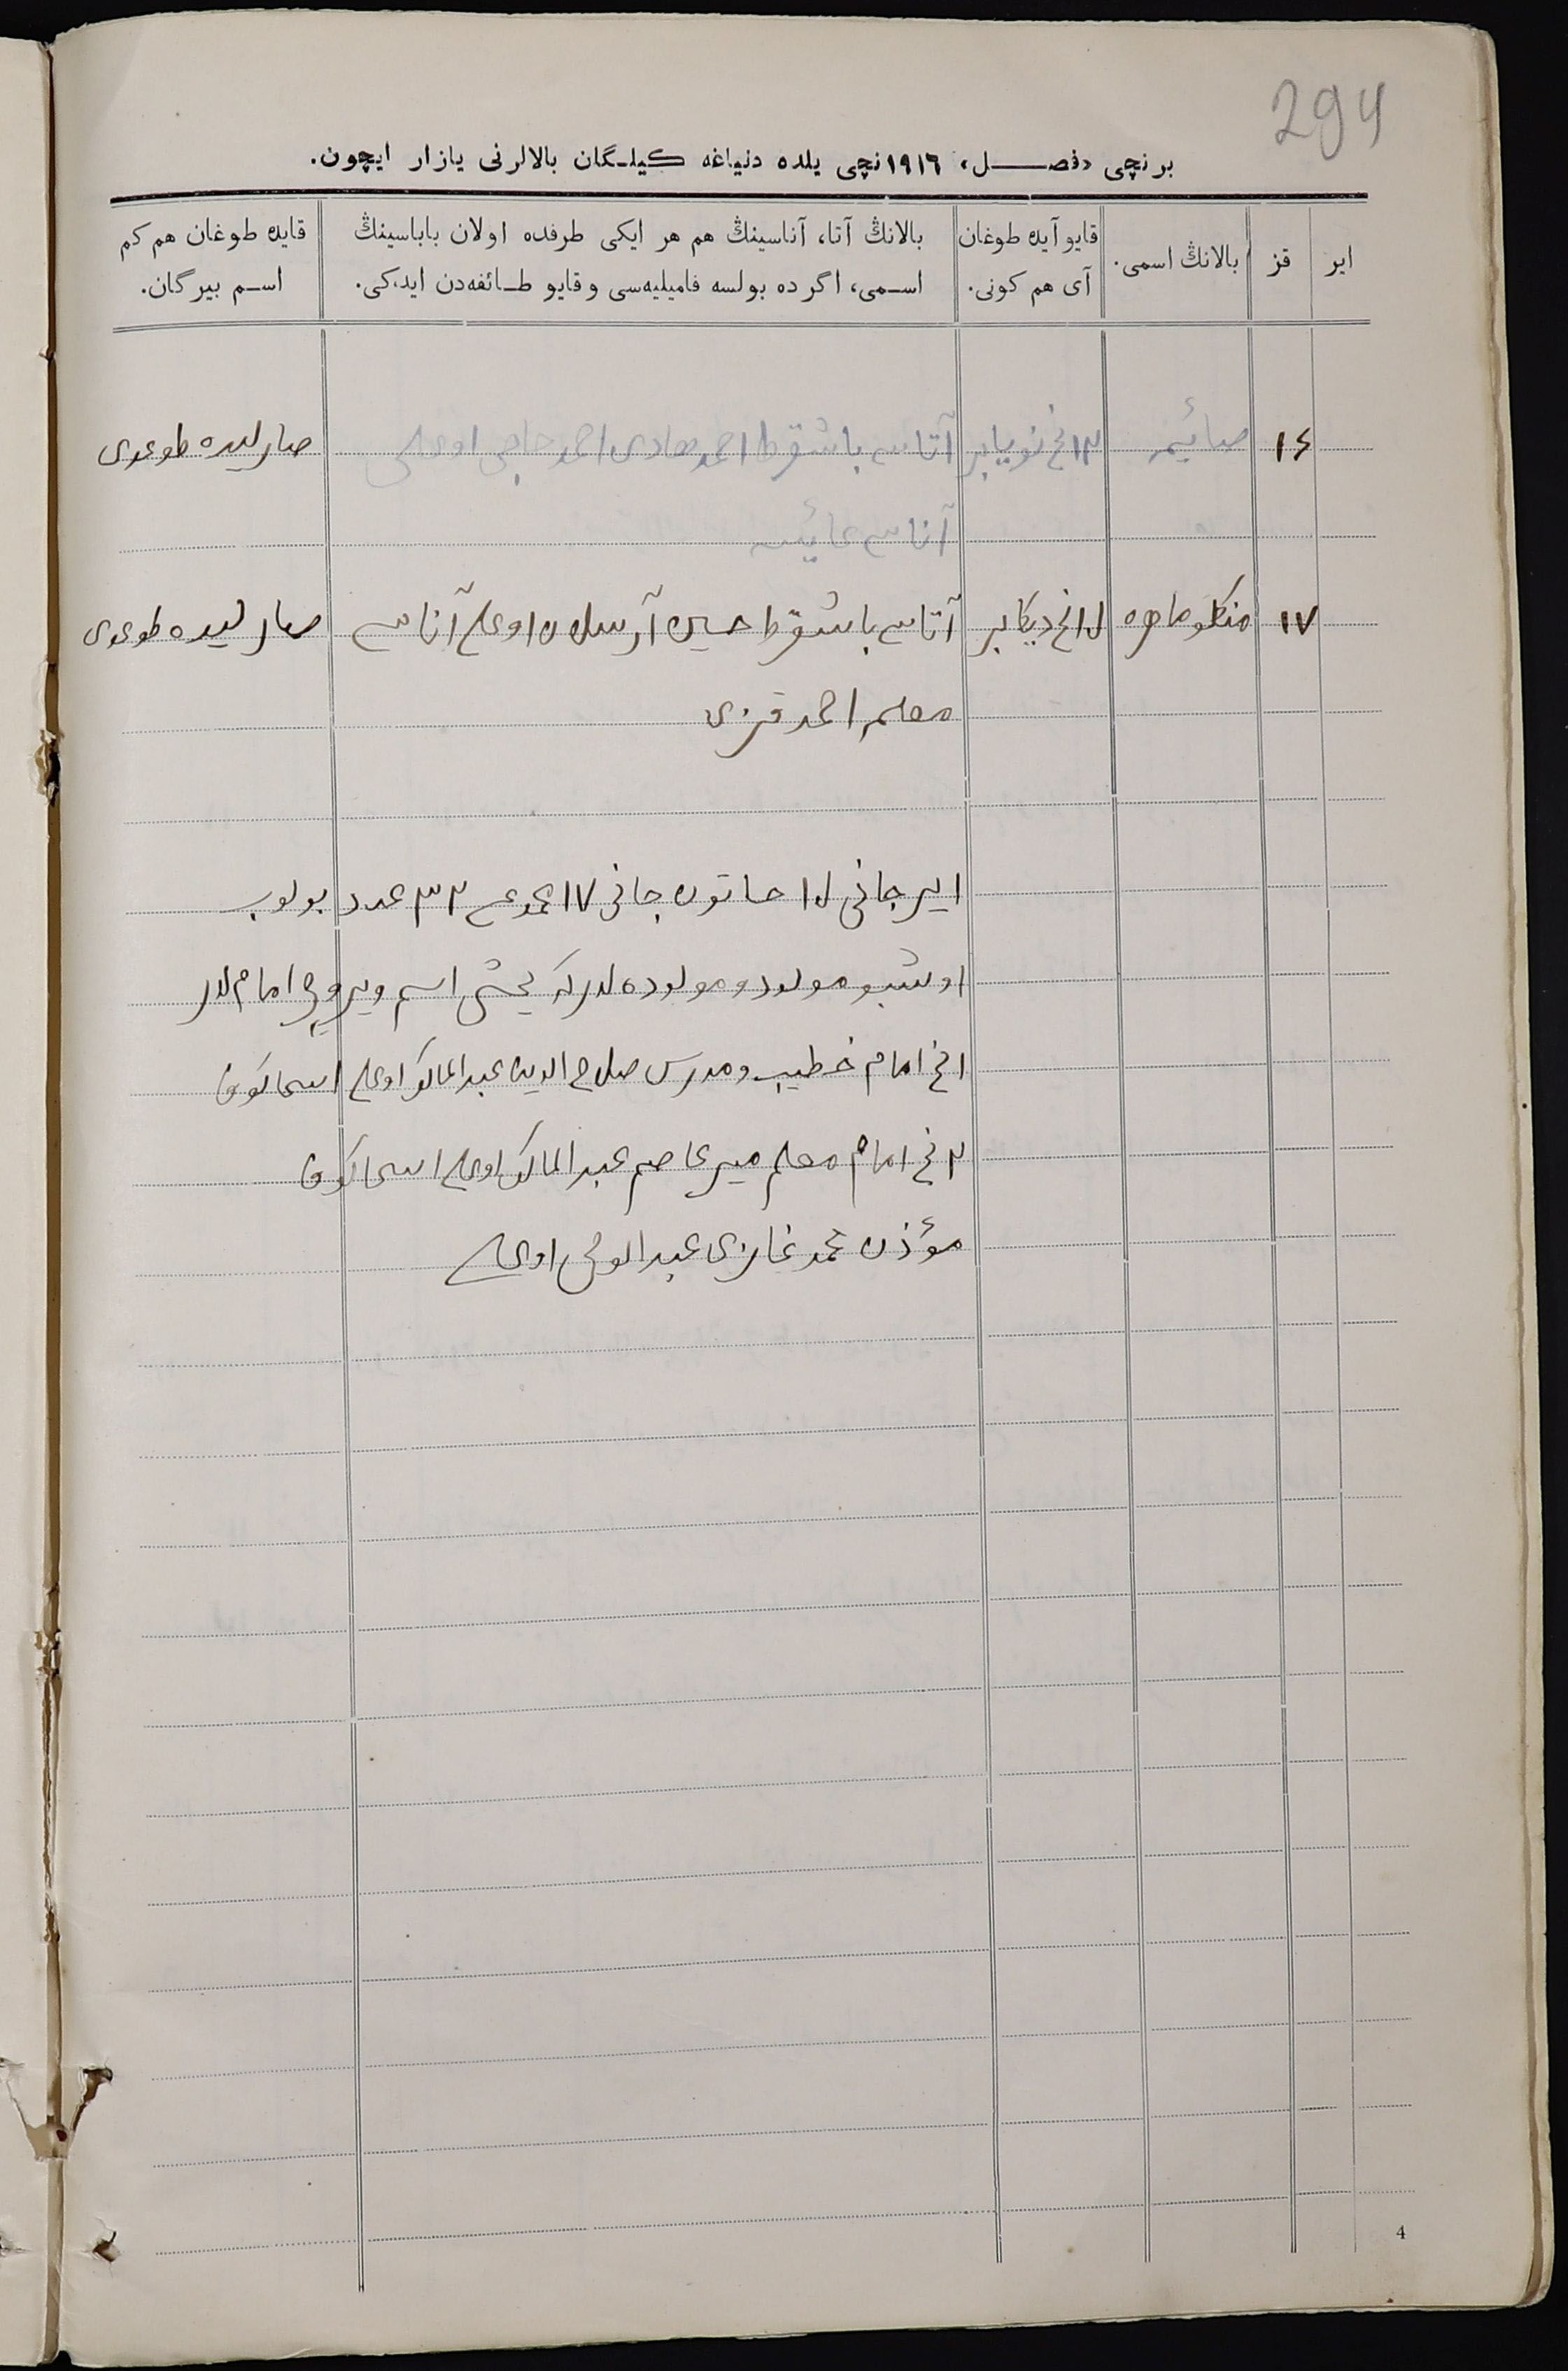 294
برنچی «فصـــل» ١٩١٦نچی یلده دنیاغه کیلـگان بالالرنی یازار ایچون.
ایر
قز
بالانڭ اسمی.
قایو آیده طوغان
آی هم کونی.
بالانڭ آتا، آناسینڭ هم هر ایکی طرفده اولان باباسینڭ
اسـمی، اگر ده بولسه فامیلیه‌سی و قایو طـائفه‌دن ایدکی.
قایده طوغان هم کم
اسـم بیرگان.
١٤ صائیمه ١٢نچی نویابر آتاسی باشقرط احمدهادی احمدحاجی اوغلی
آناسی عائیشه
١٧ منکلوماهره دیکابر آتاسی باشقرط حسین آرسلان اوغلی آناسی
معلم احمد قزی
ایر جانی ١٥ خاتون جانی ١٧ مجموعی ٣٢ عدد بولوب
اوشبو مولود و مولوده لارکه یخشی اسم ویروچی امام لار
١نچی امام خطیب و مدرس صلاح الدین عبدالمالک اوغلی اسحاکوف
٢نچی امام معلم میرعاصم عبدالمالک اوغلی اسحاکوف
مؤذن محمد غازی عبدالولی اوغلی
4